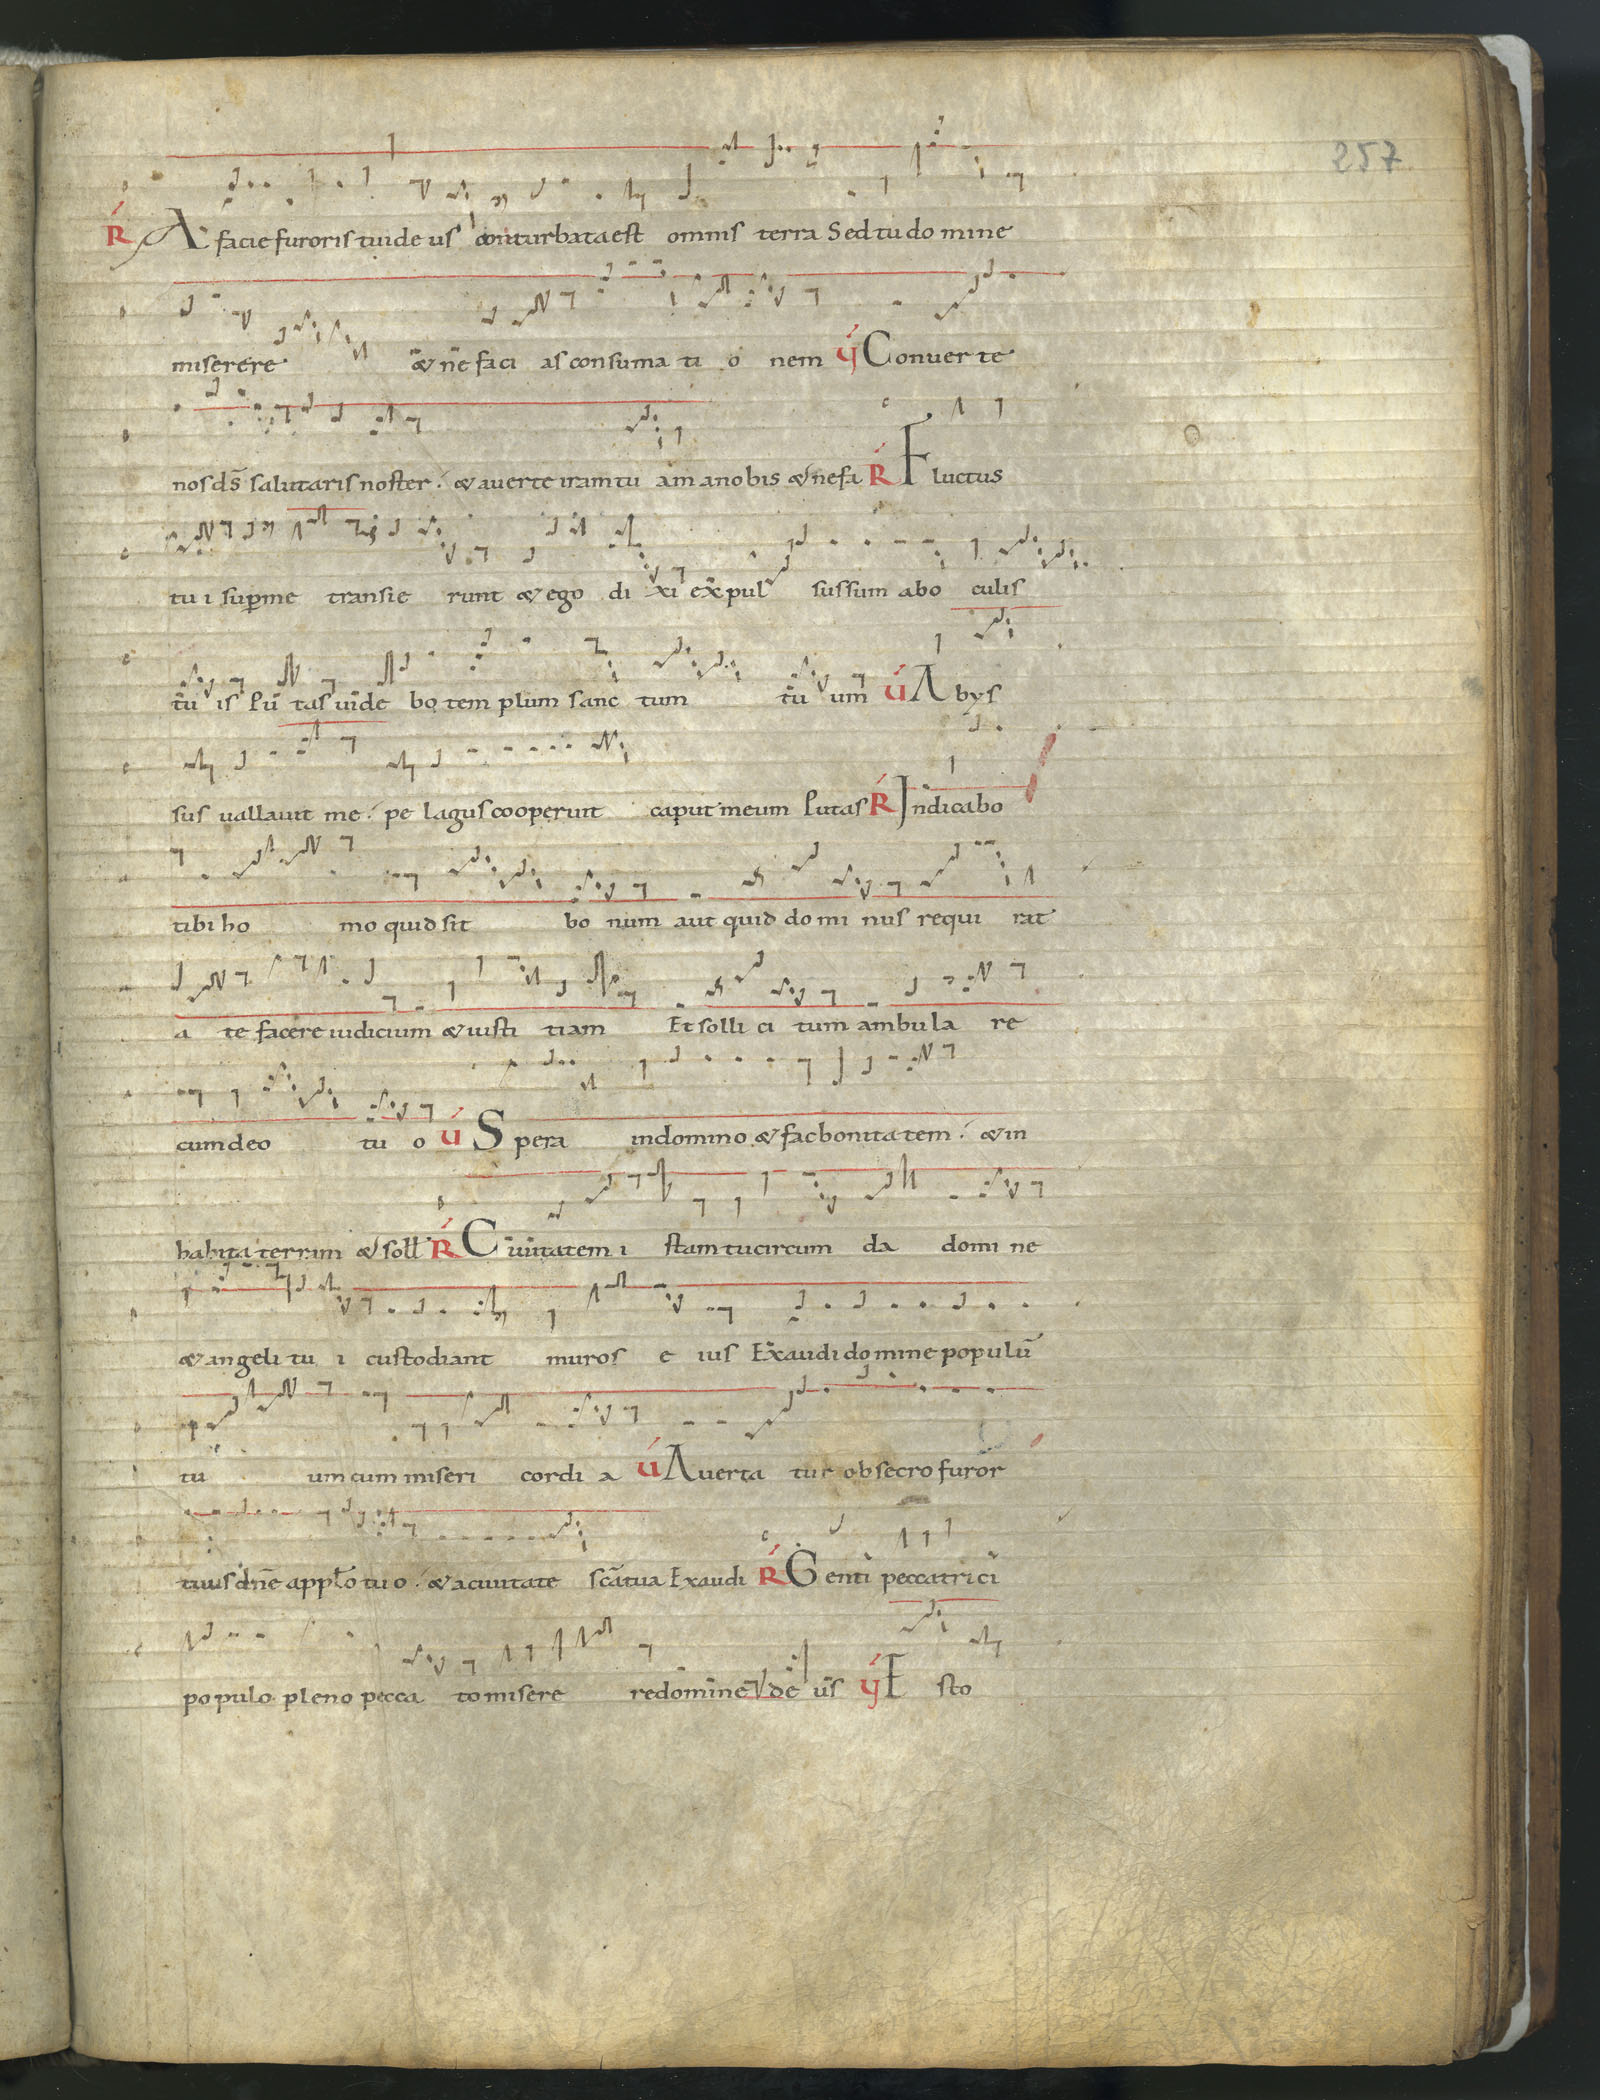 257
R A facie furoris tui de us conturbata est omnis terra Sed tu do mine
miserere & ne faci as consuma ti o nem V Conuer te
nos ds̄ salutaris noster. & auerte iram tu am a nobis & ne fa R Fluctus
tu i sup me transie runt & ego di xi expul sus sum ab o culis
tu is Pu tas uide bo tem plum sanc tum tu um V A bys
sus uallauit me. pe lagus cooperuit caput meum Putas R Indicabo
tibi ho mo quid sit bo num aut quid do mi nus requi rat
a te facere iudicium & iusti tiam Et solli ci tum ambula re
cum deo tu o V S pera in domino & fac bonita tem. & in
habita terram & soll R C iuitatem i stam tu circum da domi ne
& angeli tu i custodiant muros e ius Exaudi domine populū
tu um cum miseri cordi a V A uerta tur obsecro furor
tuus dn̄e a pplo tuo. & a ciuitate scā tua Exaudi R G enti peccatrici
populo pleno pecca to misere re domine de us V E sto